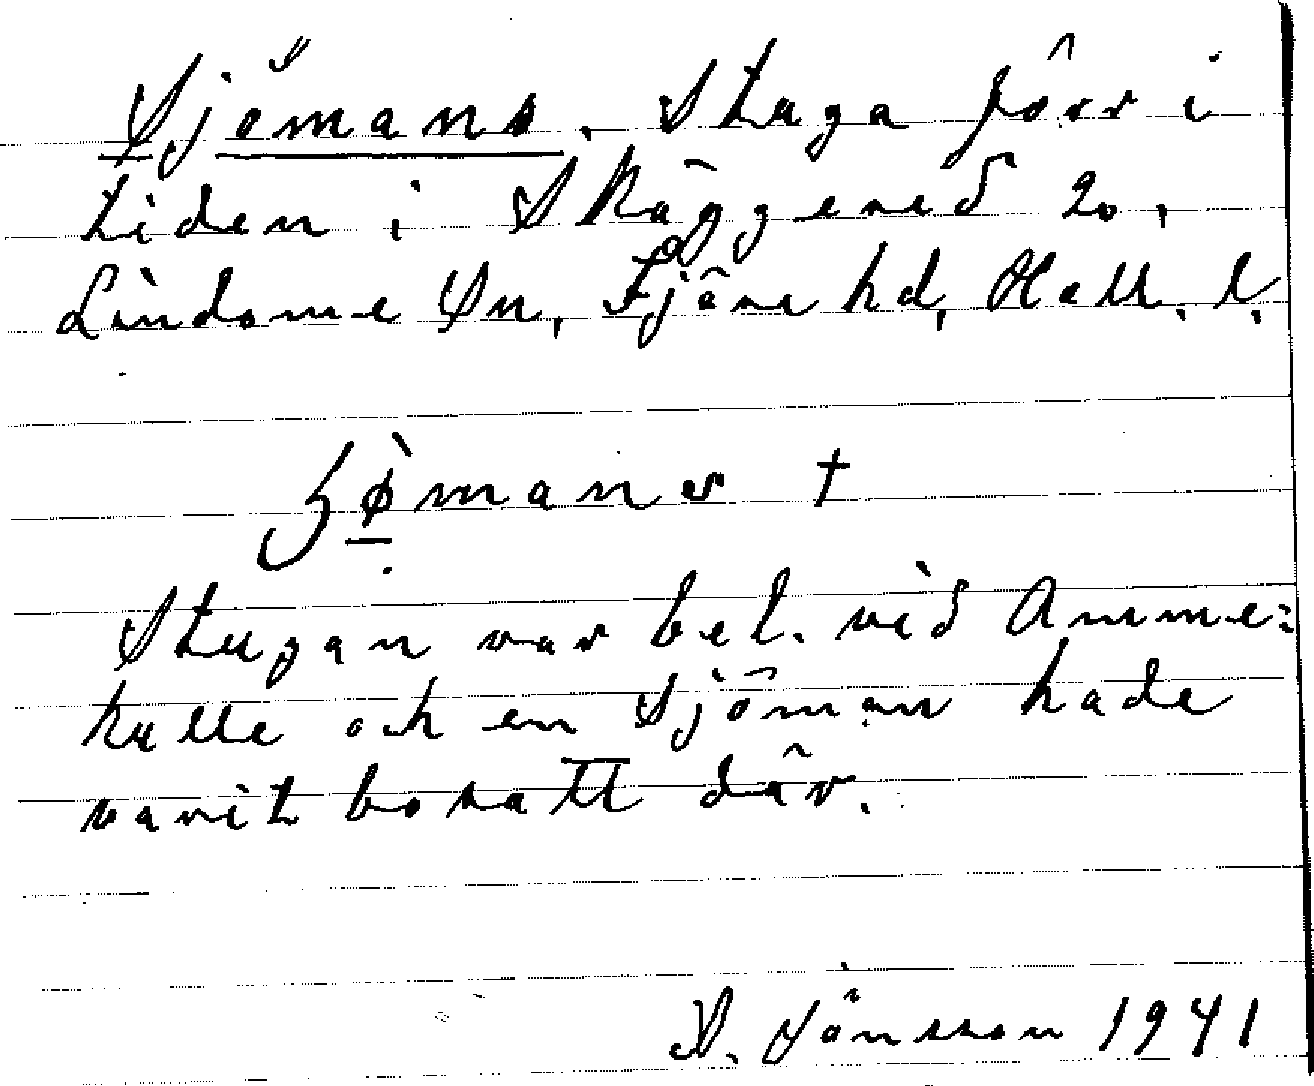 Sjömans. Stuga förr i
tiden i Skäggered 2o,
Lindome Sn, Fjäre hd, Hall. l.
ʃø̀mans +
Stugan var bel. vid Amme=
kulle och en Sjöman hade
varit bosatt där.
S. Jönsson 1941